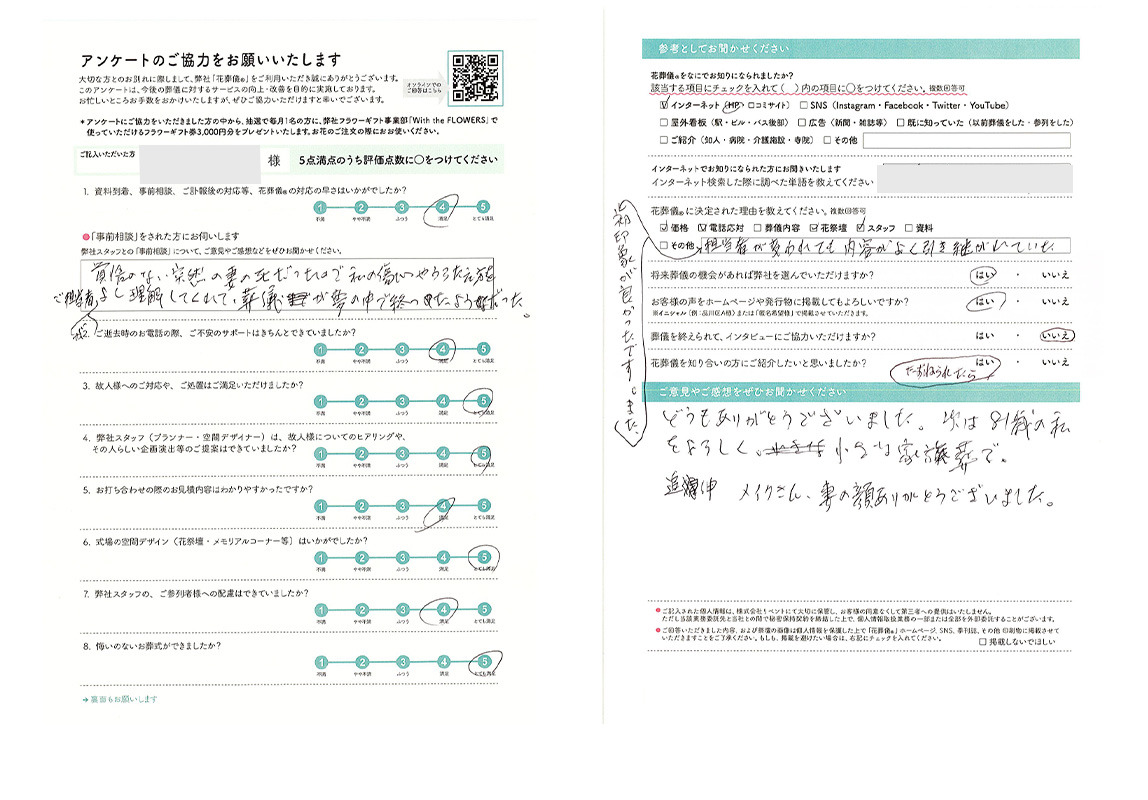 アンケートのご協力をお願いいたします
大切な方とのお別れに際しまして、弊社「花葬儀®」をご利用いただき誠にありがとうございます。
このアンケートは、今後の葬儀に対するサービスの向上・改善を目的に実施しております。
お忙しいところお手数をおかけいたしますが、ぜひご協力いただけますと幸いでございます。
オンラインでの
ご回答はこちら
*アンケートにご協力をいただきました方の中から、抽選で毎月1名の方に、弊社フラワーギフト事業部「With the FLOWERS」で
使っていただけるフラワーギフト券3,000円分をプレゼントいたします。お花のご注文の際にお使いください。
ご記入いただいた方
様
5点満点のうち評価点数に○をつけてください
1. 資料到着、事前相談、ご訃報後の対応等、花葬儀®の対応の早さはいかがでしたか?
1 2 3 4 5
不満 やや不満 ふつう 満足 とても満足
●「事前相談」をされた方にお伺いします
弊社スタッフとの「事前相談」について、ご意見やご感想などをぜひお聞かせください。
覚悟のない突然の妻の死だったので私の傷いやうろたえ方を
ご担当者が
よく理解してくれて、葬儀が夢の中で終ったようだった。
2. ご逝去時のお電話の際、ご不安のサポートはきちんとできていましたか?
1 2 3 4 5
不満 やや不満 ふつう 満足 とても満足
3. 故人様へのご対応や、ご処置はご満足いただけましたか?
1 2 3 4 5
不満 やや不満 ふつう 満足 とても満足
4. 弊社スタッフ(プランナー・空間デザイナー)は、故人様についてのヒアリングや、
その人らしい企画演出等のご提案はできていましたか?
1 2 3 4 5
不満 やや不満 ふつう 満足 とても満足
5. お打ち合わせの際のお見積内容はわかりやすかったですか?
1 2 3 4 5
不満 やや不満 ふつう 満足 とても満足
6. 式場の空間デザイン(花祭壇・メモリアルコーナー等)はいかがでしたか?
1 2 3 4 5
不満 やや不満 ふつう 満足 とても満足
7. 弊社スタッフの、ご参列者様への配慮はできていましたか?
1 2 3 4 5
不満 やや不満 ふつう 満足 とても満足
8. 悔いのないお葬式ができましたか?
1 2 3 4 5
不満 やや不満 ふつう 満足 とても満足
→裏面もお願いします
参考としてお聞かせください
花葬儀®をなにでお知りになられましたか?
該当する項目にチェックを入れて( )内の項目に○をつけてください。複数回答可
インターネット(HP・口コミサイト) SNS(Instagram・Facebook・Twitter・YouTube)
屋外看板(駅・ビル・バス後部) 広告(新聞・雑誌等) 既に知っていた(以前葬儀をした・参列をした)
ご紹介(知人・病院・介護施設・寺院) その他
インターネットでお知りになられた方にお聞きいたします
インターネット検索した際に調べた単語を教えてください
花葬儀®に決定された理由を教えてください。複数回答可
価格 電話応対 葬儀内容 花祭壇 スタッフ 資料
その他 担当者が変われても内容がよく引き継がれていた
初印象が良かったです。また、
将来葬儀の機会があれば弊社を選んでいただけますか? はい ・ いいえ
お客様の声をホームページや発行物に掲載してもよろしいですか? はい ・ いいえ
※イニシャル(例:品川区A様)または「匿名希望様」で掲載させていただきます。
葬儀を終えられて、インタビューにご協力いただけますか? はい ・ いいえ
花葬儀を知り合いの方にご紹介したいと思いましたか? はい ・ いいえ
たずねられたら
ご意見やご感想をぜひお聞かせください
どうもありがとうございました。次は81歳の私
をよろしく。小さな家族葬で。
追伸 メイクさん、妻の顔ありがとうございました。
●ご記入された個人情報は、株式会社リベントにて大切に保管し、お客様の同意なくして第三者への提供はいたしません。
ただし当該業務委託先と当社との間で秘密保持契約を締結した上で、個人情報取扱業務の一部または全部を外部委託することがございます。
●ご回答いただきました内容、および祭壇の画像は個人情報を保護した上で「花葬儀®」ホームページ、SNS、季刊誌、その他印刷物に掲載させて
いただきますことをご了承ください。もしも、掲載を避けたい場合は、右記にチェックを入れてください。 掲載しないでほしい